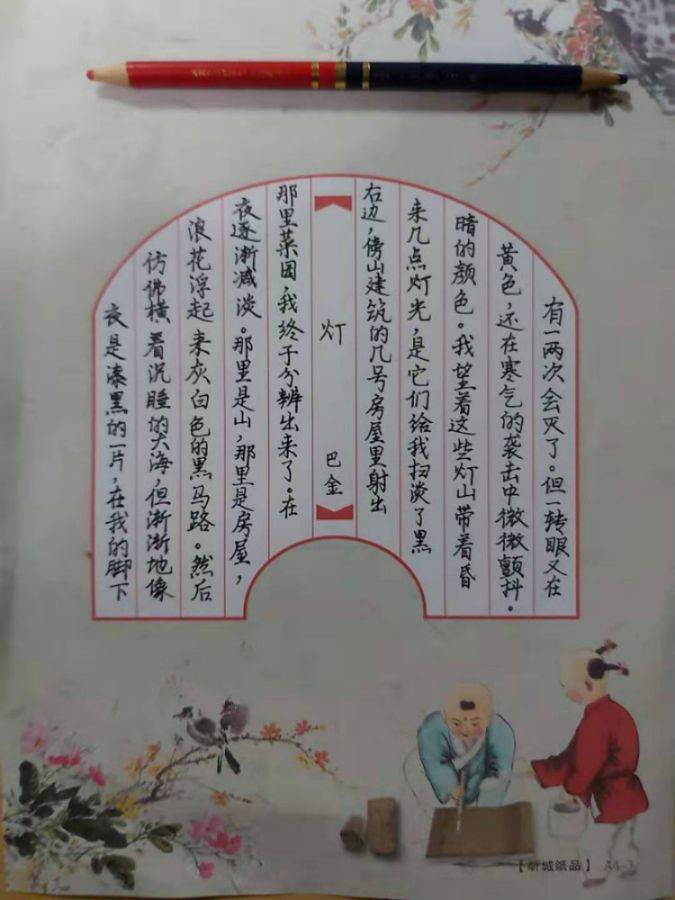 夜是漆黑的一片，在我的脚下
仿佛横着沉睡的大海，但渐渐地像
浪花浮起来灰白色的黑马路。然后
夜逐渐减淡。那里是山，那里是房屋，
那里菜园，我终于分辨出来了。在
灯
巴金
右边，傍山建筑的几号房屋里射出
来几点灯光，是它们给我扫淡了黑
暗的颜色。我望着这些灯山带着昏
黄色，还在寒气的袭击中微微颤抖。
有一两次会灭了。但一转眼又在
【新城纸品】 A4-3